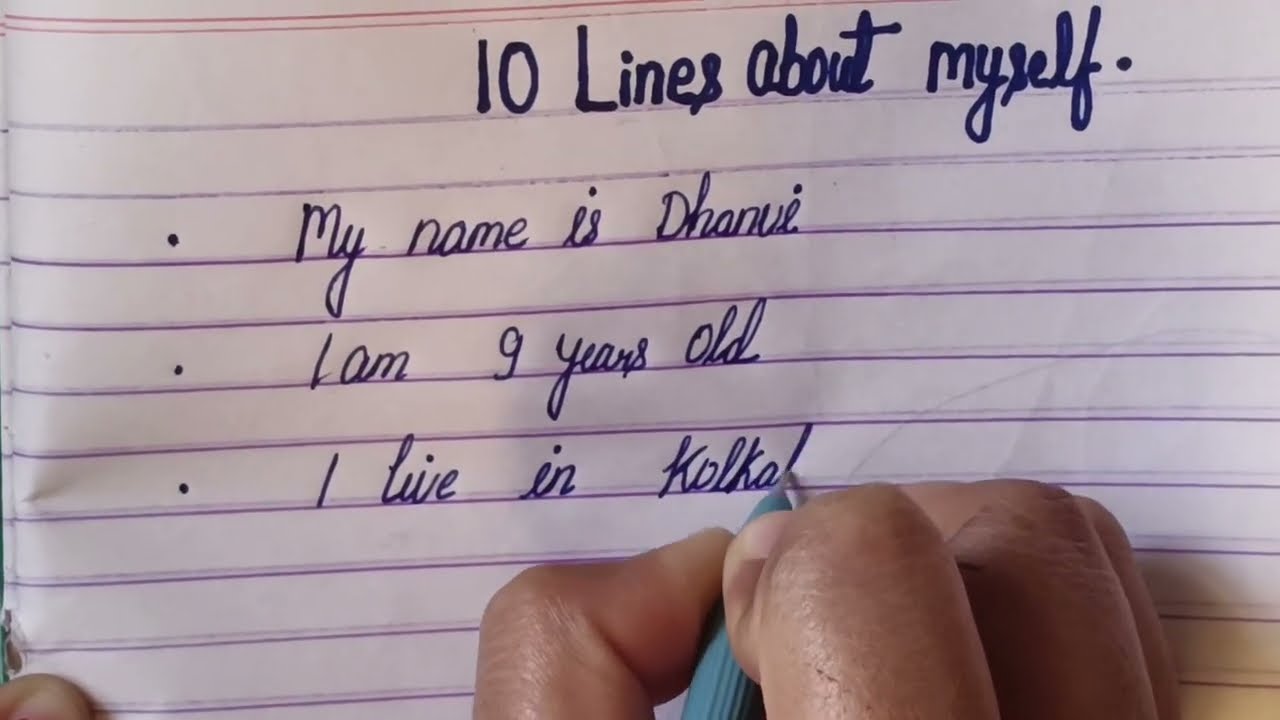 10 Lines about myself.
• My name is Dhanvi
• I am 9 years old
• I live in Kolkat